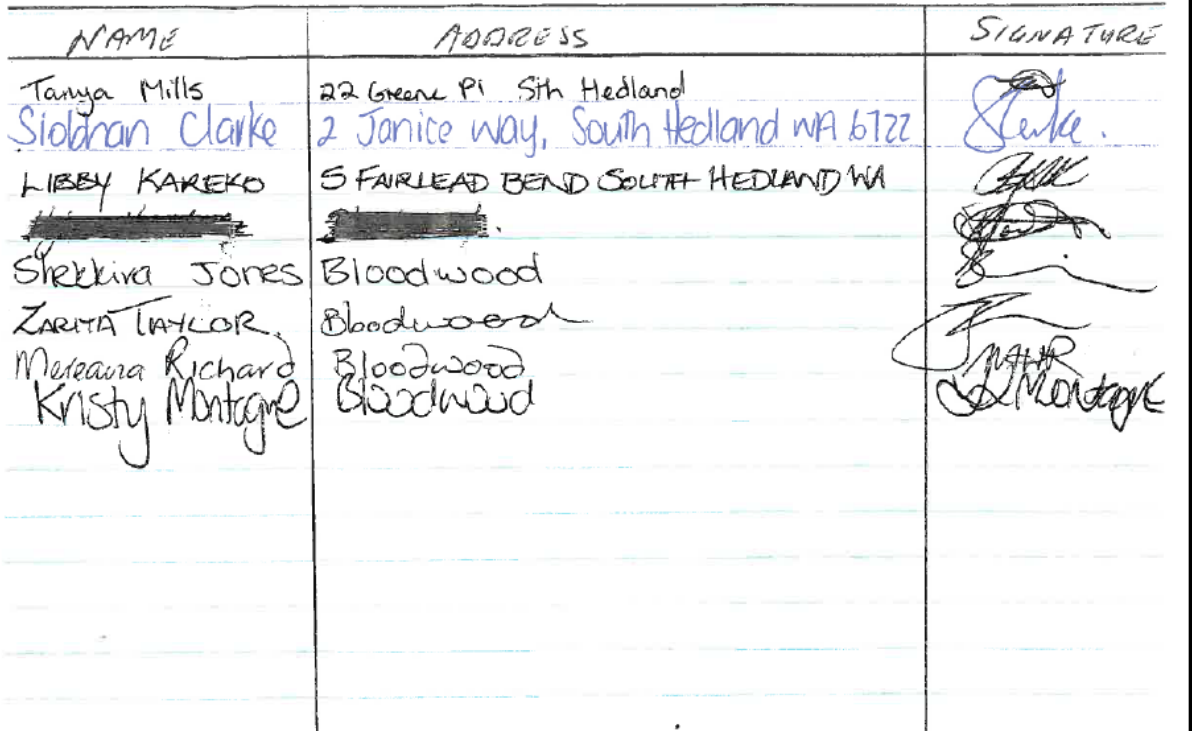 NAME ADDRESS SIGNATURE
Tanya Mills 22 Greene Pl Sth Hedland
Siobhan Clarke 2 Janice Way, South Hedland WA 6722 SClarke.
LIBBY KAREKO 5 FAIRLEAD BEND SOUTH HEDLAND WA
Shekkira Jones Bloodwood
ZARITA TAYLOR. Bloodwood
Mereana Richard Bloodwood
Kristy Montagne Bloodwood Montagne